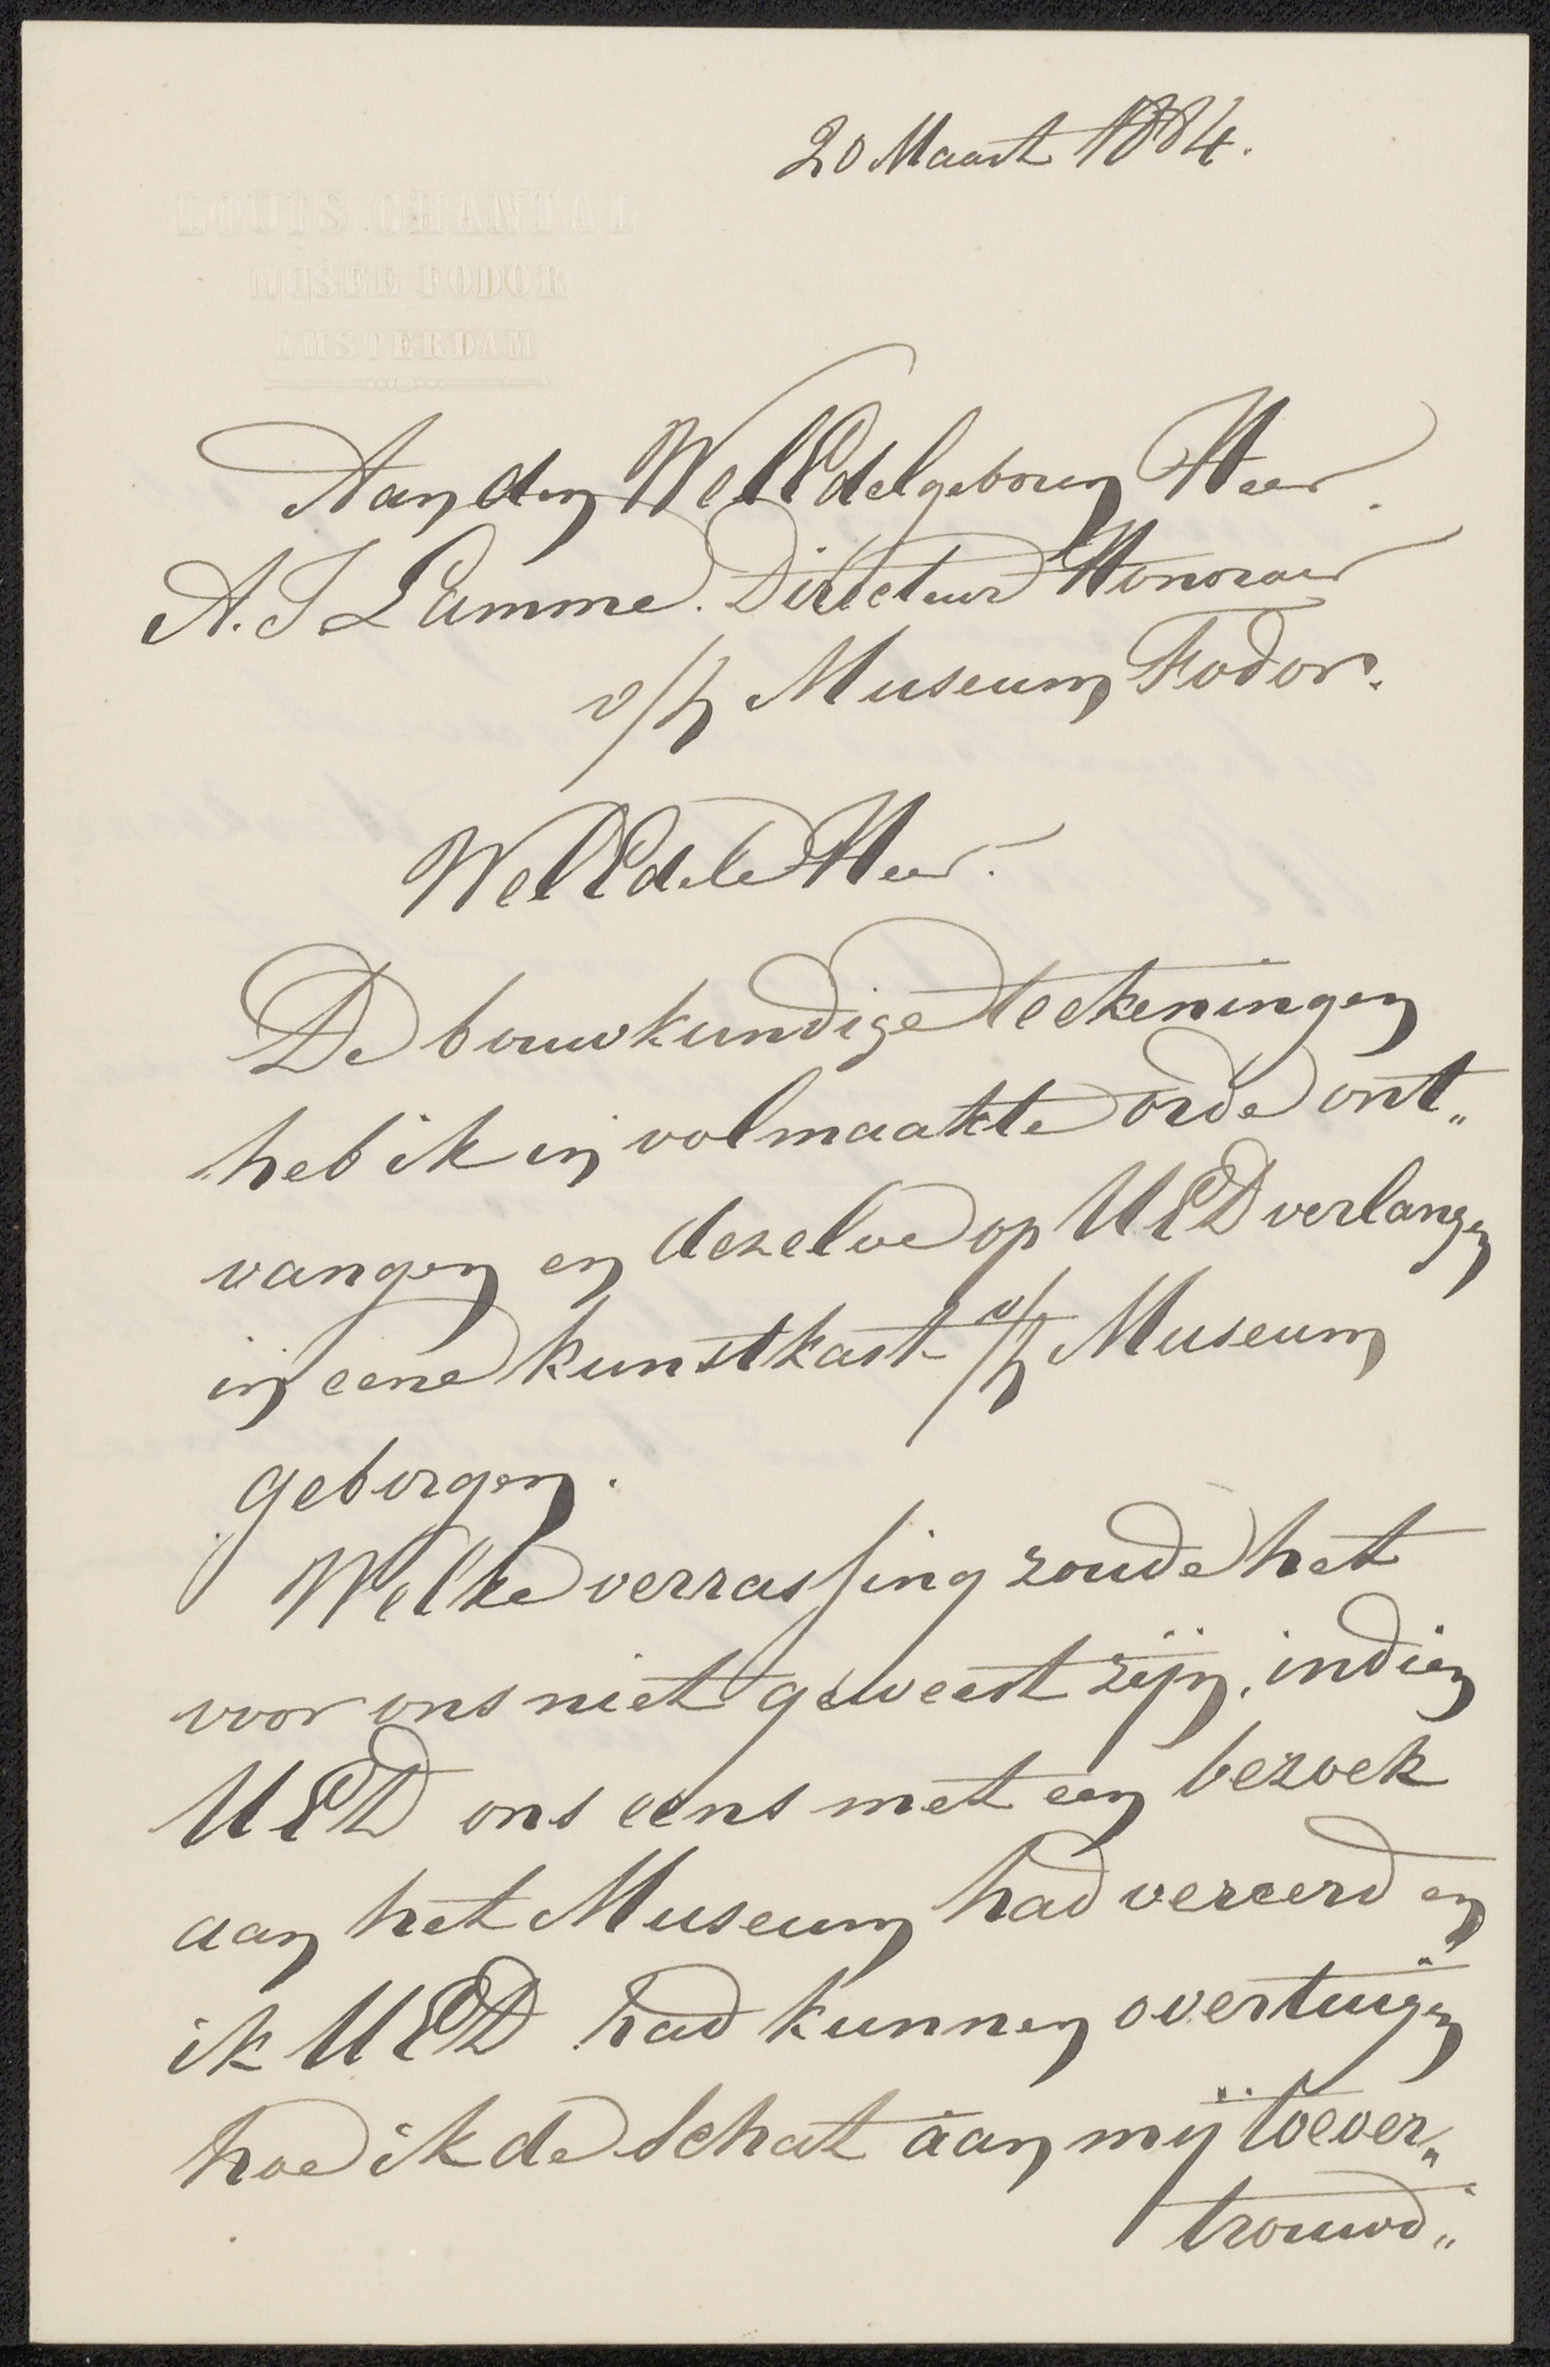 20 Maart 1884.
LOUIS CHANTAL
MUSEE FODOR
AMSTERDAM
Aan den WelEdelgeboren Heer
A. J Lamme. Directeur Honorair
v/h Museum Fodor.
WelEdele Heer.
De bouwkundige teekeningen
heb ik in volmaakte orde ont„
vangen en dezelve op UED verlangen
in eene kunstkast v/h Museum
geborgen.
Welke verrassing zoude het
voor ons niet geweest zijn, indien
UED ons eens met een bezoek
aan het Museum had vereerd en
ik UED had kunnen overtuigen
hoe ik de schat aan mij toever„
trouwd„